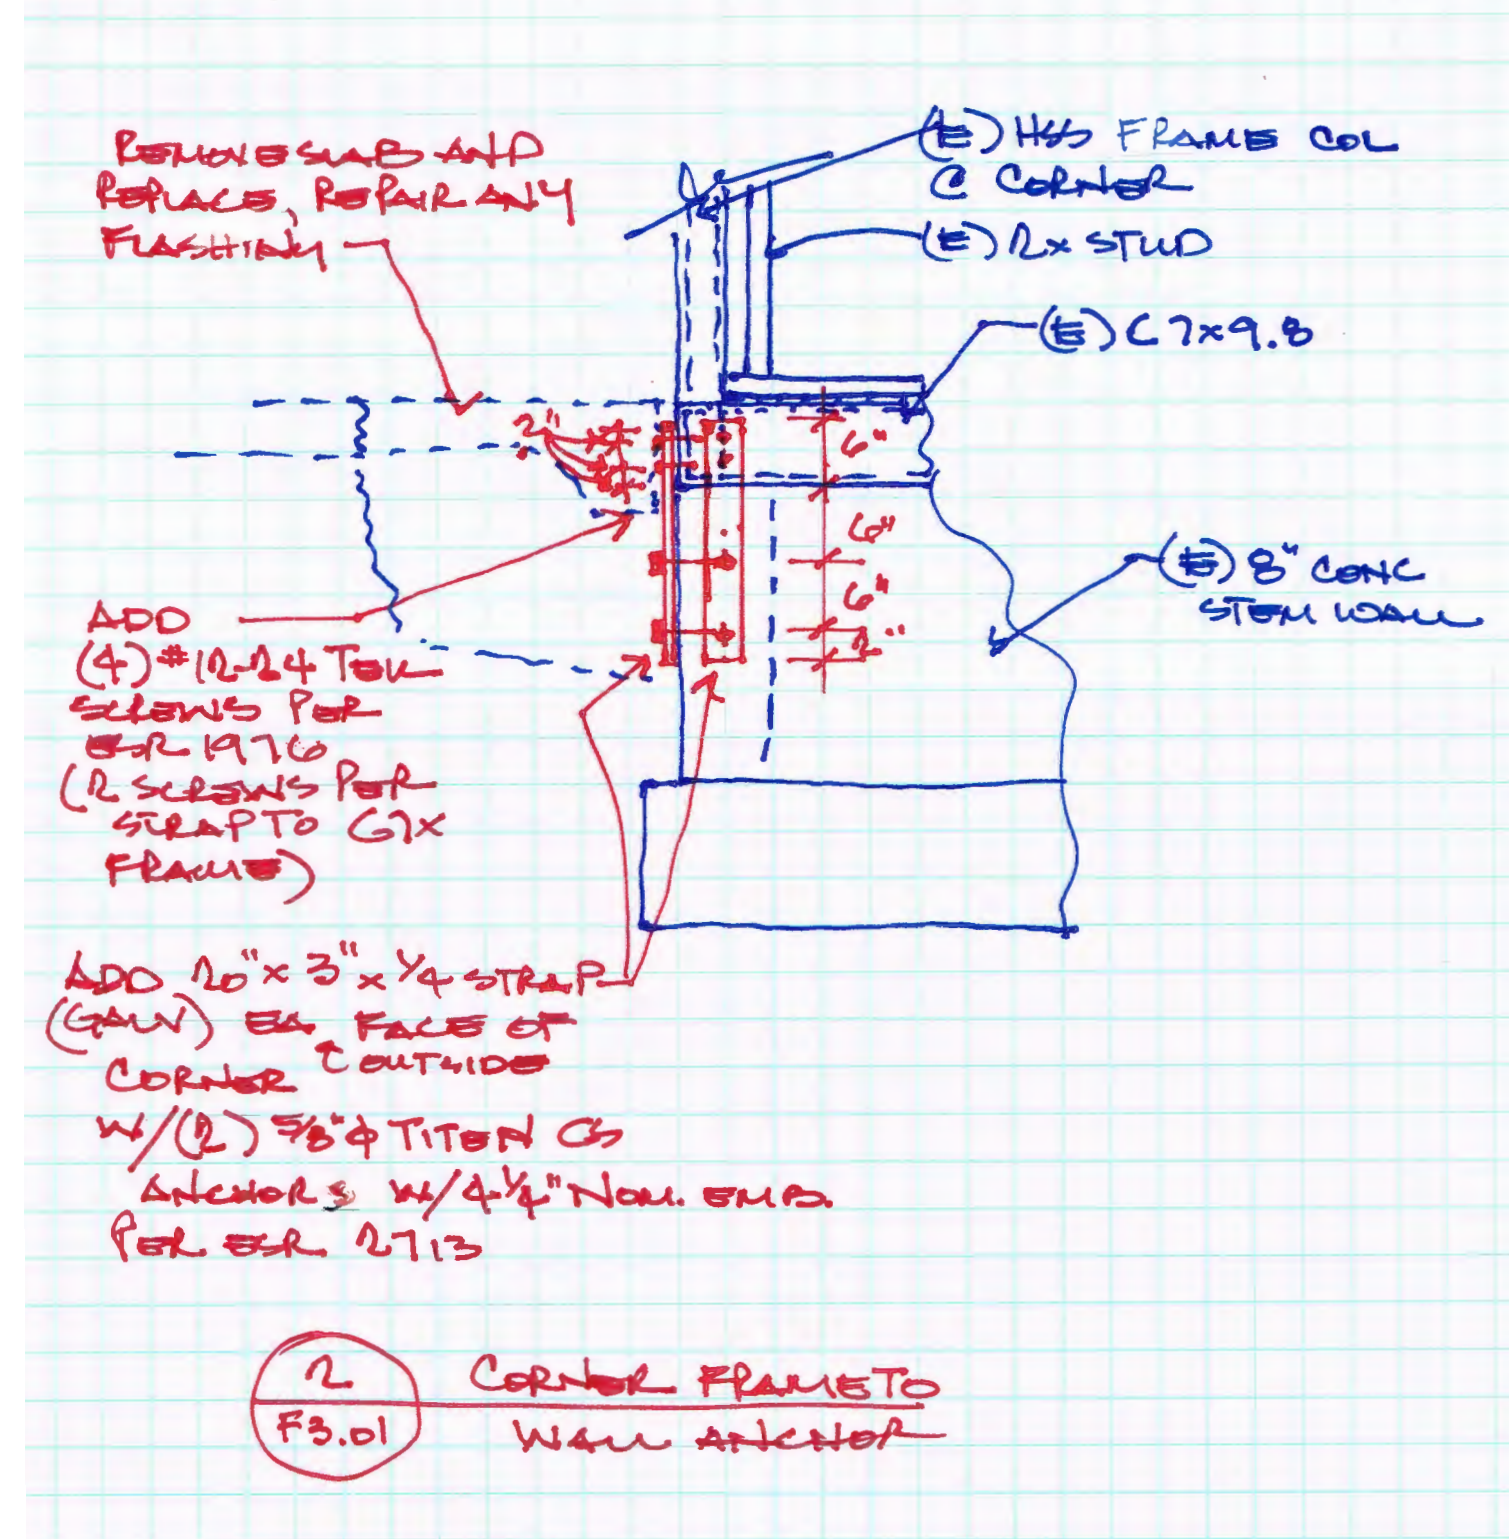 REMOVE SLAB AND
REPLACE, REPAIR ANY
FLASHING
(E) HSS FRAME COL
@ CORNER
(E) 2x STUD
(E) C7x9.8
2"
6"
6"
6"
2"
(E) 8" CONC
STEM WALL
ADD
(4) #12-24 TEK
SCREWS PER
ESR 1976
(2 SCREWS PER
STRAP TO C7X
FRAME)
ADD 20" x 3" x 1/4 STRAP
(GALV) EA. FACE OF
CORNER OUTSIDE
W/(2) 5/8"φ TITEN
ANCHORS W/4 1/4" NOM. EMB.
PER ESR 2713
2
F3.01
CORNER FRAME TO
WALL ANCHOR